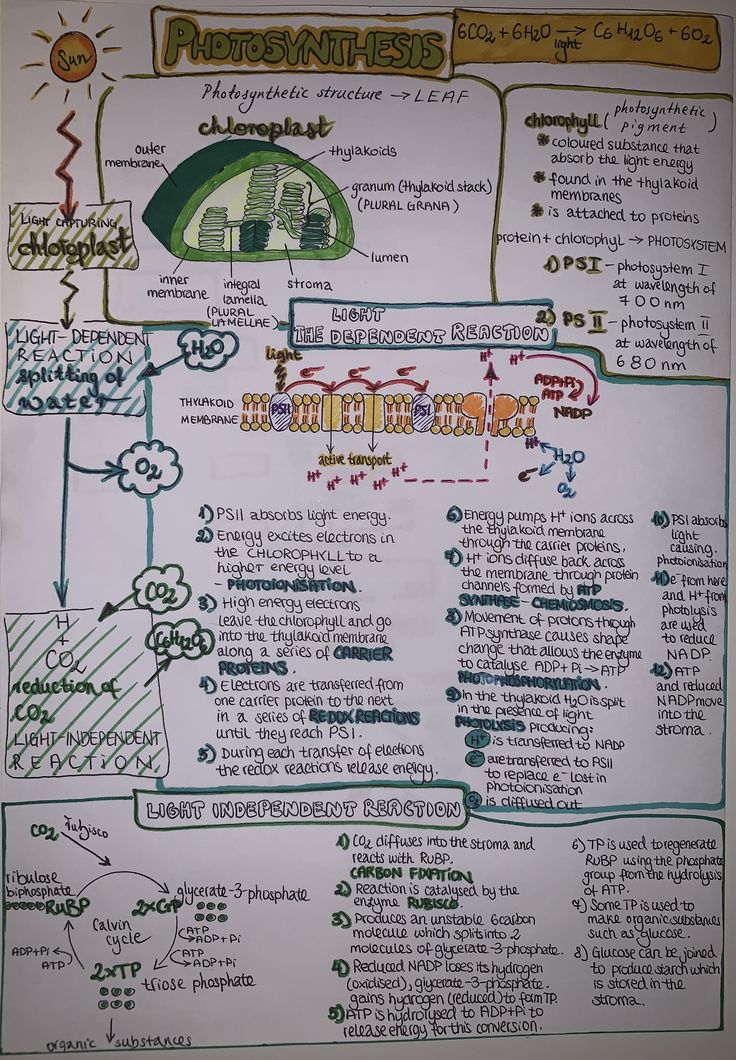 PHOTOSYNTHESIS
6CO2 + 6H2O → C6H12O6 + 6O2
light
Sun
Photosynthetic structure → LEAF
chloroplast
outer
membrane
thylakoids
granum (thylakoid stack)
(PLURAL GRANA)
lumen
inner
membrane
integral
lamella
(PLURAL
LAMELLAE)
stroma
chlorophyll (photosynthetic
pigment)
* coloured substance that
absorb the light energy
* found in the thylakoid
membranes
* is attached to proteins
protein + chlorophyl → PHOTOSYSTEM
1) PSI - photosystem I
at wavelength of
700nm
2) PS II - photosystem II
at wavelength of
680nm
LIGHT CAPTURING
chloroplast
LIGHT-DEPENDENT
REACTION
splitting of
water
H2O
O2
CO2
C6H12O6
H
+
CO2
reduction of
CO2
LIGHT-INDEPENDENT
REACTION
LIGHT
THE DEPENDENT REACTION
light
e-
e-
e-
THYLAKOID
MEMBRANE
PSII
PSI
active transport
H+ H+ H+ H+ H+
H+
H+
ADP+Pi
ATP
NADP
H+
H2O
e-
O2
1) PSII absorbs light energy.
2) Energy excites electrons in
the CHLOROPHYLL to a
higher energy level
- PHOTOIONISATION.
3) High energy electrons
leave the chlorophyll and go
into the thylakoid membrane
along a series of CARRIER
PROTEINS.
4) Electrons are transferred from
one carrier protein to the next
in a series of REDOX REACTIONS
until they reach PSI.
5) During each transfer of elections
the redox reactions release energy.
6) Energy pumps H+ ions across
the thylakoid membrane
through the carrier proteins.
7) H+ ions diffuse back across
the membrane through protein
channels formed by ATP
SYNTHASE - CHEMIOSMOSIS.
8) Movement of protons through
ATP synthase causes shape
change that allows the enzyme
to catalyse ADP + Pi → ATP
PHOTOPHOSPHORYLATION.
9) In the thylakoid H2O is split
in the presence of light
PHOTOLYSIS producing:
H+ is transferred to NADP
e- are transferred to PSII
to replace e- lost in
photoionisation
O2 is diffused out
10) PSI absorbs
light
causing
photoionisation
11) e- from here
and H+ from
photolysis
are used
to reduce
NADP.
12) ATP
and reduced
NADP move
into the
stroma.
LIGHT INDEPENDENT REACTION
CO2
rubisco
ribulose
biphosphate
RuBP
2xGP
glycerate-3-phosphate
Calvin
cycle
ATP
ADP+Pi
ATP
ADP+Pi
ADP+Pi
ATP
2xTP
triose phosphate
organic substances
1) CO2 diffuses into the stroma and
reacts with RuBP.
CARBON FIXATION
2) Reaction is catalysed by the
enzyme RUBISCO.
3) Produces an unstable 6carbon
molecule which splits into 2
molecules of glycerate-3-phosphate.
4) Reduced NADP loses its hydrogen
(oxidised), glycerate-3-phosphate.
gains hydrogen (reduced) to form TP.
5) ATP is hydrolysed to ADP+Pi to
release energy for this conversion.
6) TP is used to regenerate
RuBP using the phosphate
group from the hydrolysis
of ATP.
7) Some TP is used to
make organic substances
such as glucose.
8) Glucose can be joined
to produce starch which
is stored in the
stroma.